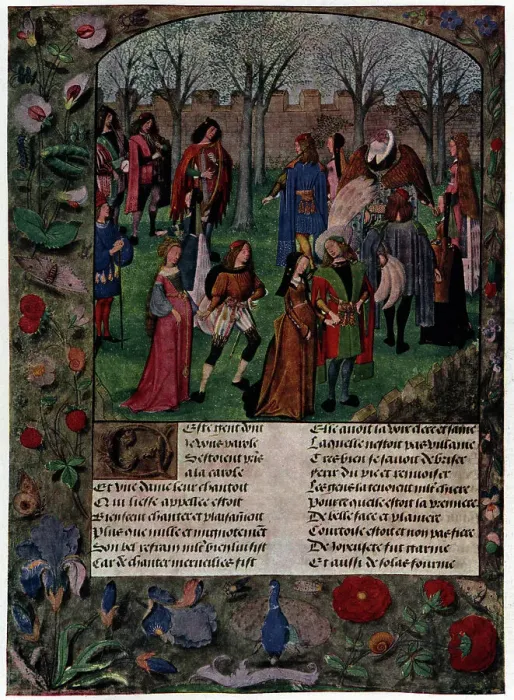 Ceste gent dont
Je vous parole
Sestoient pris
a la carole
Et vne dame leur chantoit
Qui liesse appellee estoit
Bien sceut chanter et plaisamment
Plus que nulle et mignotement
Son bel refrain mlt bien lui sist
Car de chanter merueilles fist
Elle auoit la voix clere et saine
Laquelle nestoit pas villaine
Tresbien se sauoit debriser
ferir du pie et renuoiser
Les gens la tenoient mlt chiere
Pource quelle estoit la premiere
De belle face et planiere
Courtoise estoit et non pas fiere
De Joyeusete fut garnie
Et aussi de solas fournie